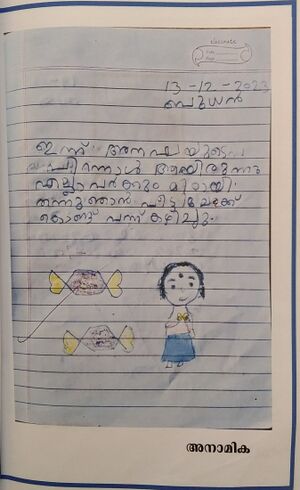 classmate
Date
Page
13-12-2023
ബുധൻ
ഇന്ന് അനഘയുടെ
പിറന്നാൾ ആയിരുന്നു
എല്ലാവർക്കും മിഠായി
തന്നു ഞാൻ വീട്ടിലേക്ക്
കൊണ്ടു വന്ന് കഴിച്ചു.
അനാമിക